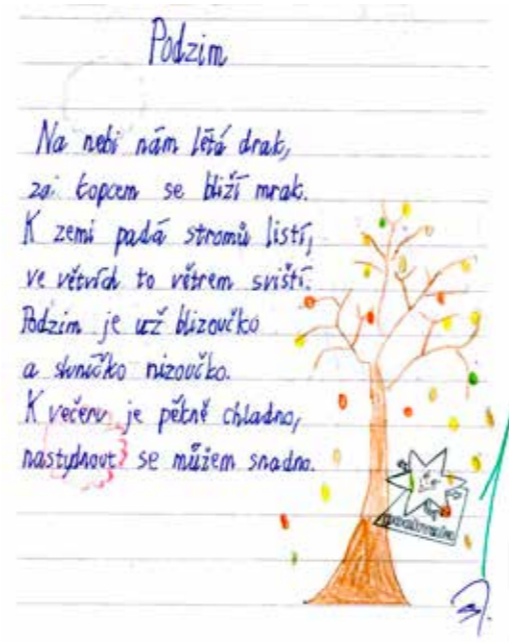 Podzim
Na nebi nám létá drak,
za kopcem se blíží mrak.
K zemi padá stromů listí,
ve větvích to větrem sviští.
Podzim je už blizoučko
a sluníčko nizoučko.
K večeru je pěkně chladno,
nastydnout se můžem snadno.
pochvala